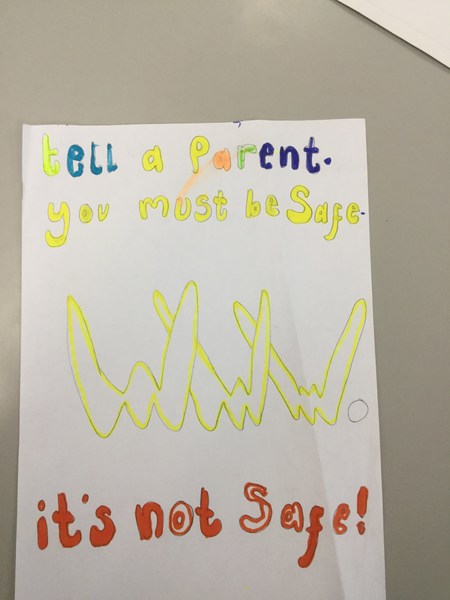 tell a Parent.
you must be Safe.
WWW.
it's not Safe!